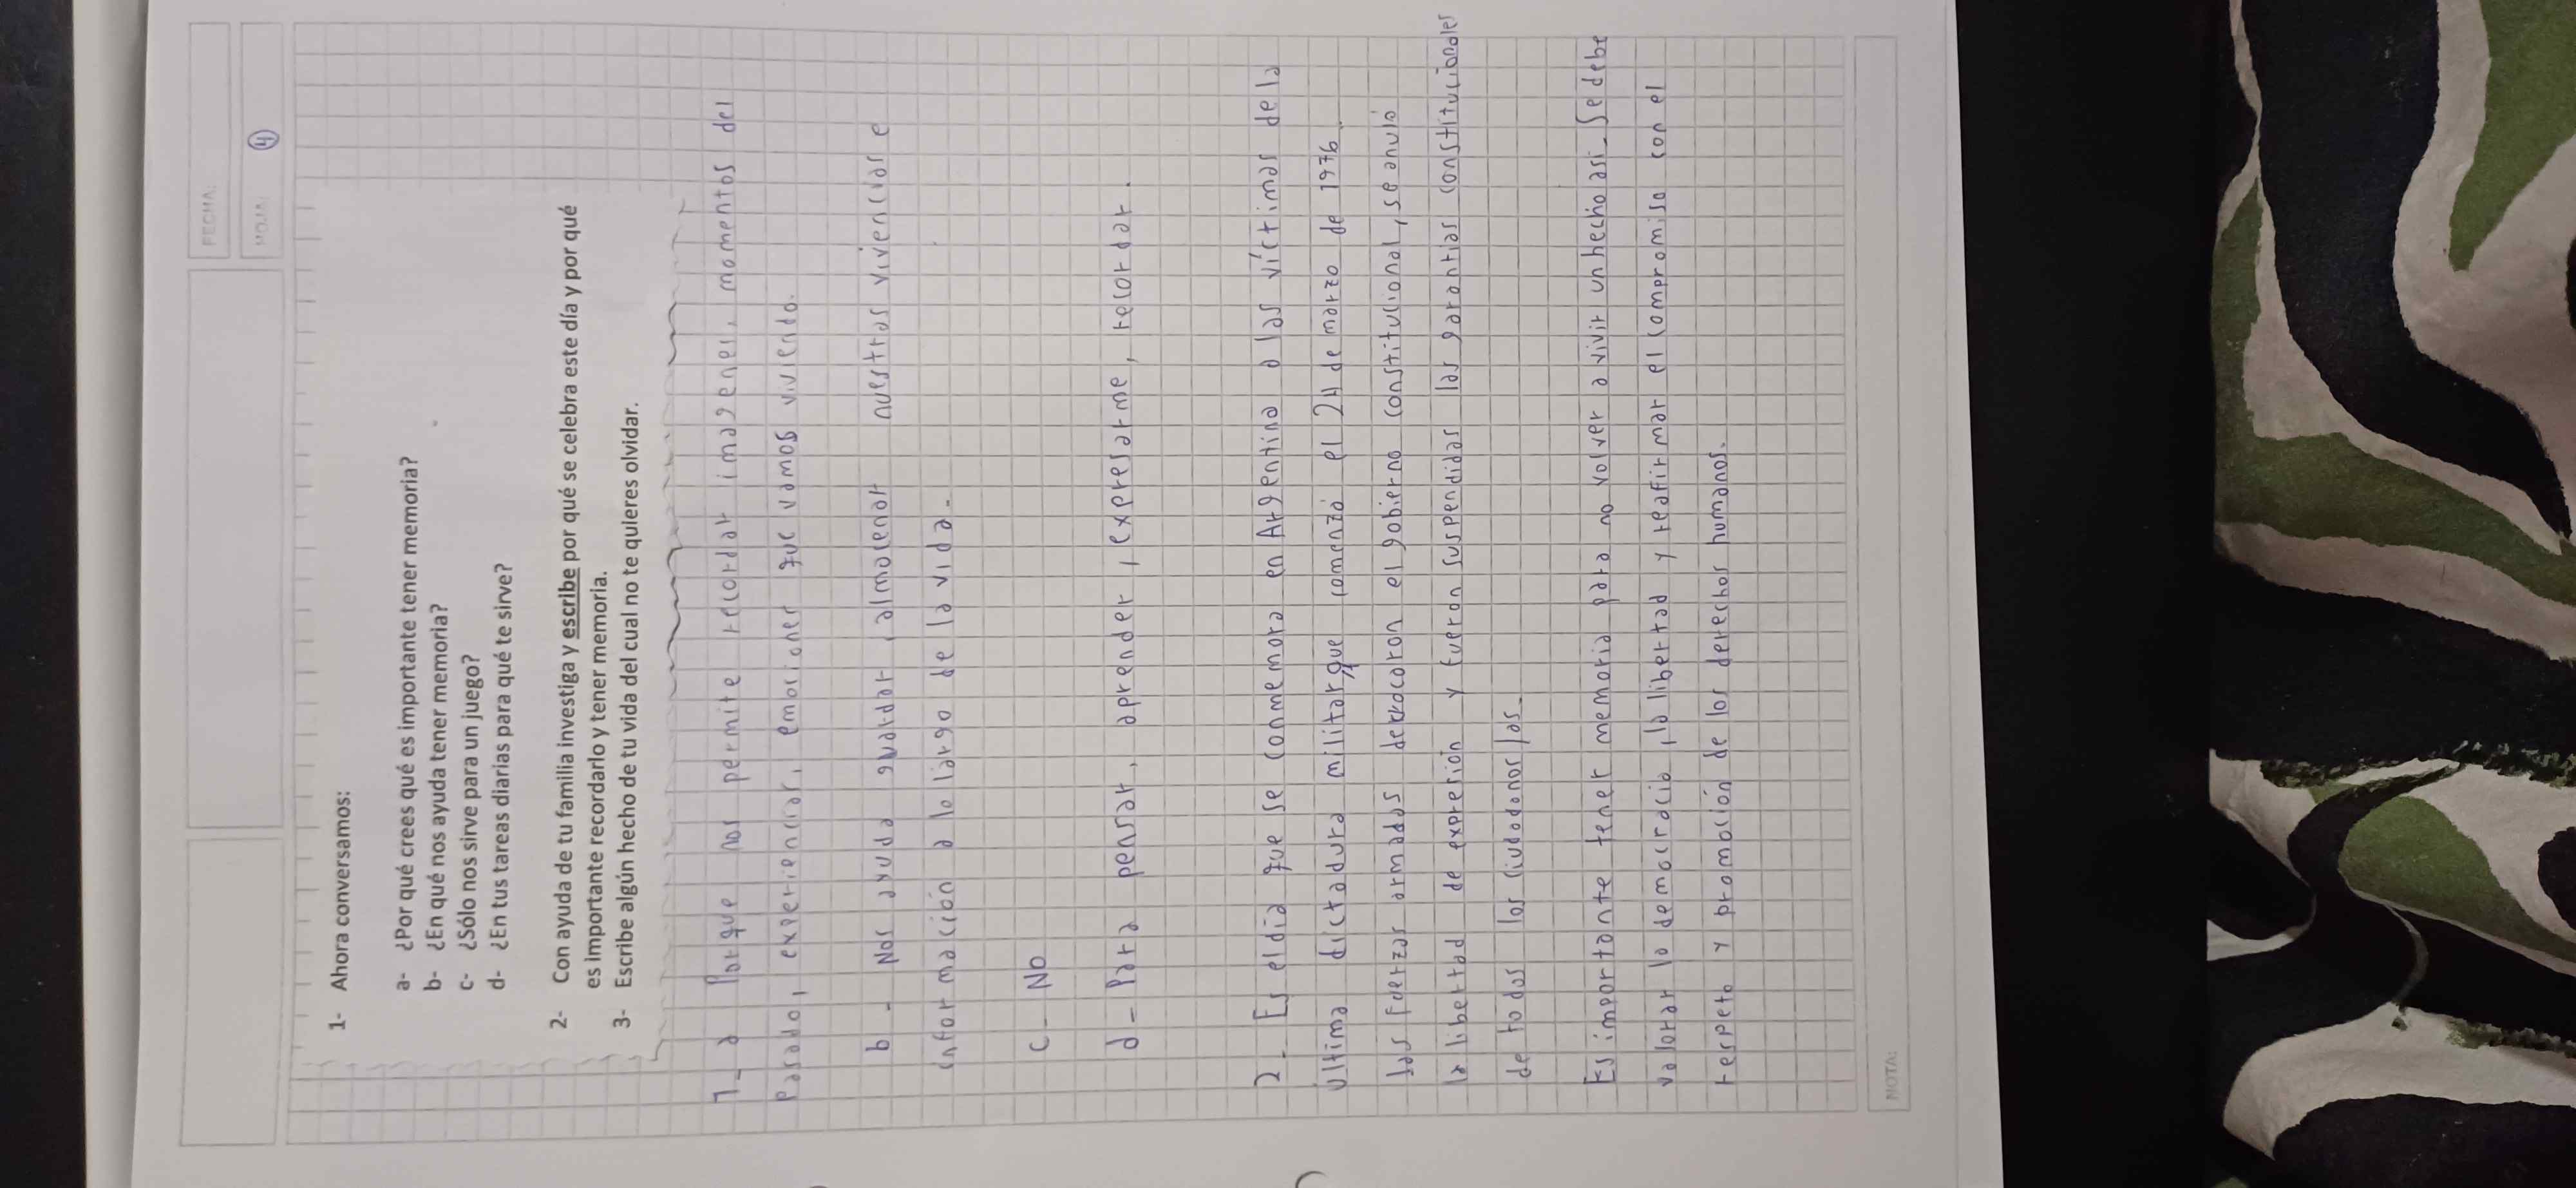 FECHA:
HOJA: 4
1- Ahora conversamos:
a- ¿Por qué crees qué es importante tener memoria?
b- ¿En qué nos ayuda tener memoria?
c- ¿Sólo nos sirve para un juego?
d- ¿En tus tareas diarias para qué te sirve?
2- Con ayuda de tu familia investiga y escribe por qué se celebra este día y por qué
es importante recordarlo y tener memoria.
3- Escribe algún hecho de tu vida del cual no te quieres olvidar.
1_ a Porque nos permite recordar imagenes, momentos del
Pasado, experiencias, emosiones que vamos viviendo.
b - Nos ayuda guardar, almacenar nuestras vivencias e
información a lo largo de la vida.
c - No
d - Para pensar, aprender, expresarme, recordar.
2_ Es el día que se conmemora en Argentina a las víctimas de la
última dictadura militar que comenzó el 24 de marzo de 1976.
las fuerzas armadas derrocaron el gobierno constitucional, se anuló
la libertad de expresión y fueron suspendidas las garantias constitucionales
de todos los ciudadonos/as.
Es importante tener memoria para no volver a vivir un hecho asi_ Se debe
valorar la democracia, la libertad y reafirmar el compromiso con el
respeto y promoción de los derechos humanos.
NOTA: